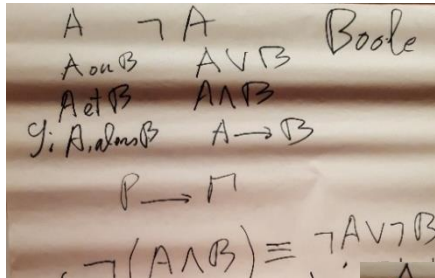 A ¬A Boole
A ou B A∨B
A et B A∧B
Si A, alors B A → B
P → Π
¬(A∧B) ≡ ¬A∨¬B